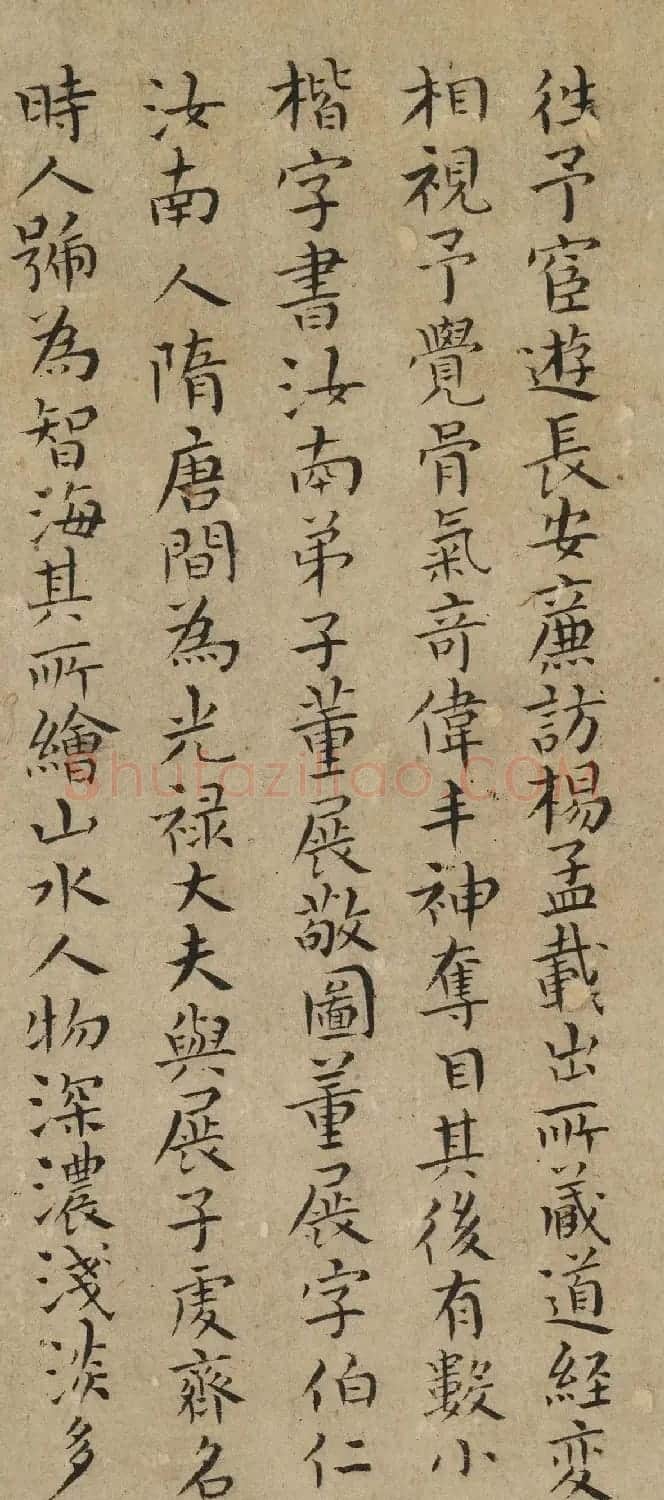 往予宦遊長安廉訪楊孟載出所藏道經变
相視予覺骨氣奇偉丰神奪目其後有數小
楷字書汝南弟子董展敬圖董展字伯仁
汝南人隋唐間為光禄大夫與展子虔齊名
時人號為智海其所繪山水人物深濃淺淡多
shufaziliao.COM